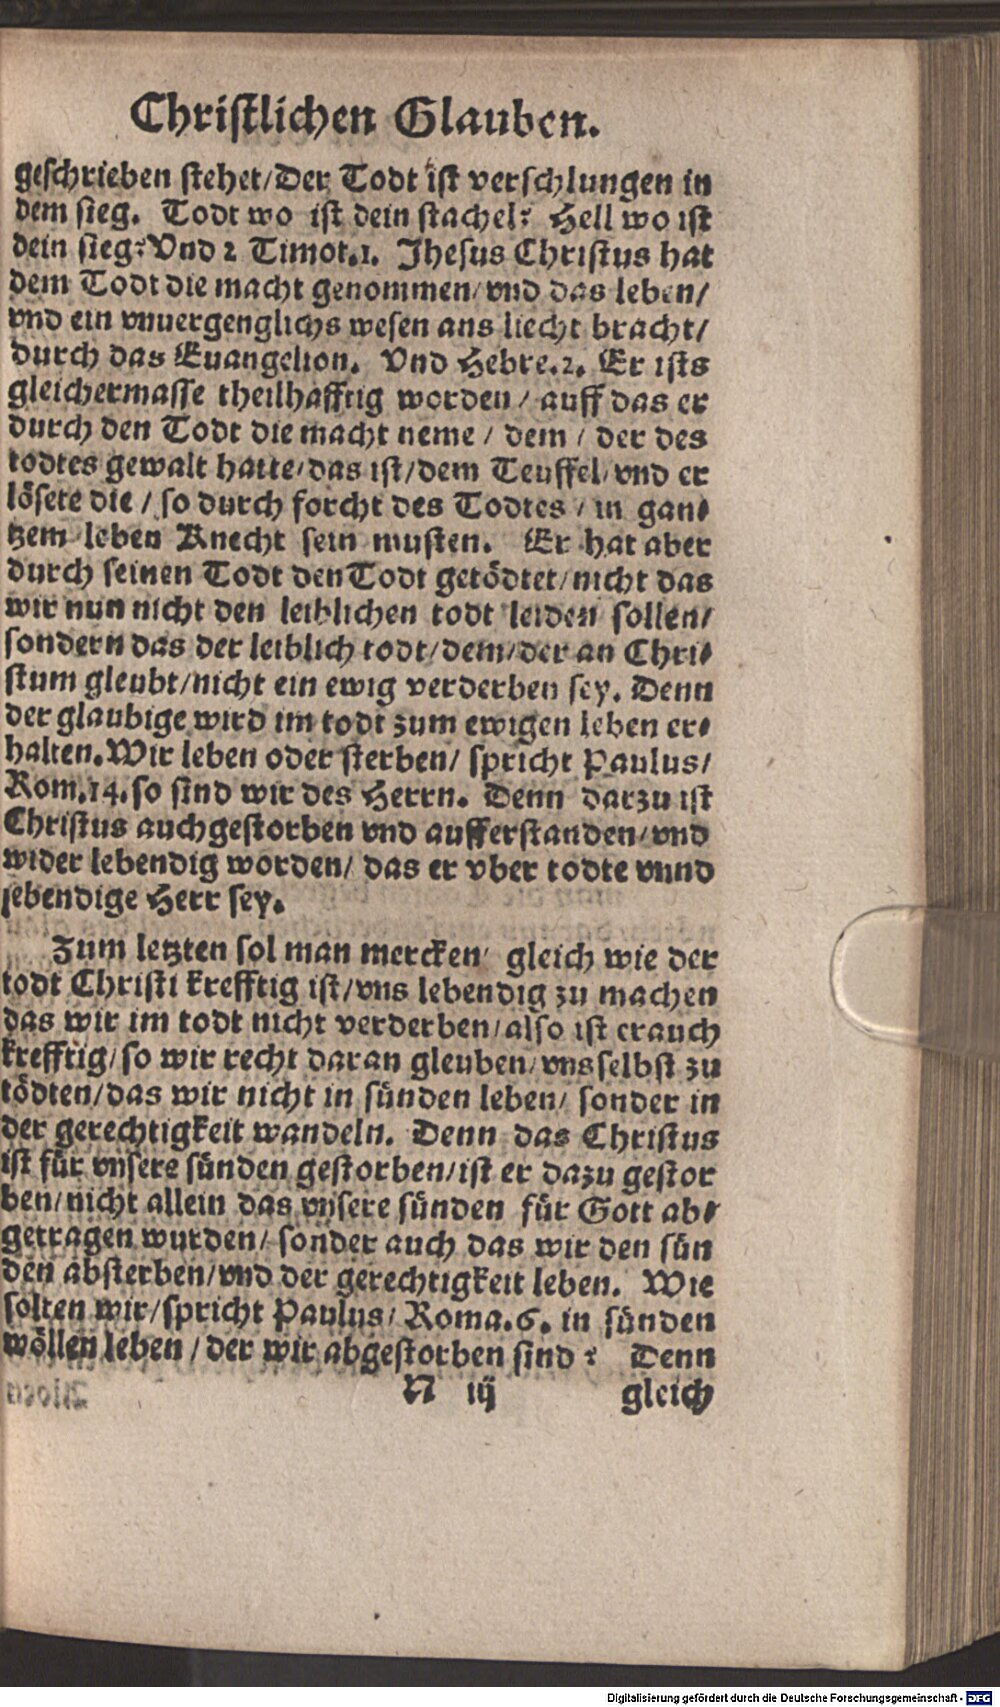 Christlichen Glauben.
geschrieben stehet/Der Todt ist verschlungen in
dem sieg. Todt wo ist dein stachel? Hell wo ist
dein sieg? Vnd 2 Timot.1. Jhesus Christus hat
dem Todt die macht genommen/vnd das leben/
vnd ein vnuergenglichs wesen ans liecht bracht/
durch das Euangelion. Vnd Hebre.2. Er ists
gleichermasse theilhafftig worden/ auff das er
durch den Todt die macht neme / dem / der des
todtes gewalt hatte/das ist/dem Teuffel/vnd er
lösete die / so durch forcht des Todtes / in gan⸗
tzem leben Knecht sein musten. Er hat aber
durch seinen Todt den Todt getödtet/nicht das
wir nun nicht den leiblichen todt leiden sollen/
sondern das der leiblich todt/dem/der an Chri⸗
stum gleubt/nicht ein ewig verderben sey. Denn
der glaubige wird im todt zum ewigen leben er⸗
halten. Wir leben oder sterben/ spricht Paulus/
Rom.14. so sind wir des Herrn. Denn darzu ist
Christus auch gestorben vnd aufferstanden/vnd
wider lebendig worden/ das er vber todte vnnd
lebendige Herr sey.
Zum letzten sol man mercken/ gleich wie der
todt Christi krefftig ist/vns lebendig zu machen
das wir im todt nicht verderben/also ist er auch
krefftig/so wir recht daran gleuben/vns selbst zu
tödten/das wir nicht in sünden leben/ sonder in
der gerechtigkeit wandeln. Denn das Christus
ist für vnsere sünden gestorben/ist er dazu gestor
ben/nicht allein das vnsere sünden für Gott ab⸗
getragen wurden/ sonder auch das wir den sün
den absterben/vnd der gerechtigkeit leben. Wie
solten wir/spricht Paulus/ Roma.6. in sünden
wöllen leben / der wir abgestorben sind? Denn
N iij gleich
Digitalisierung gefördert durch die Deutsche Forschungsgemeinschaft - DFG